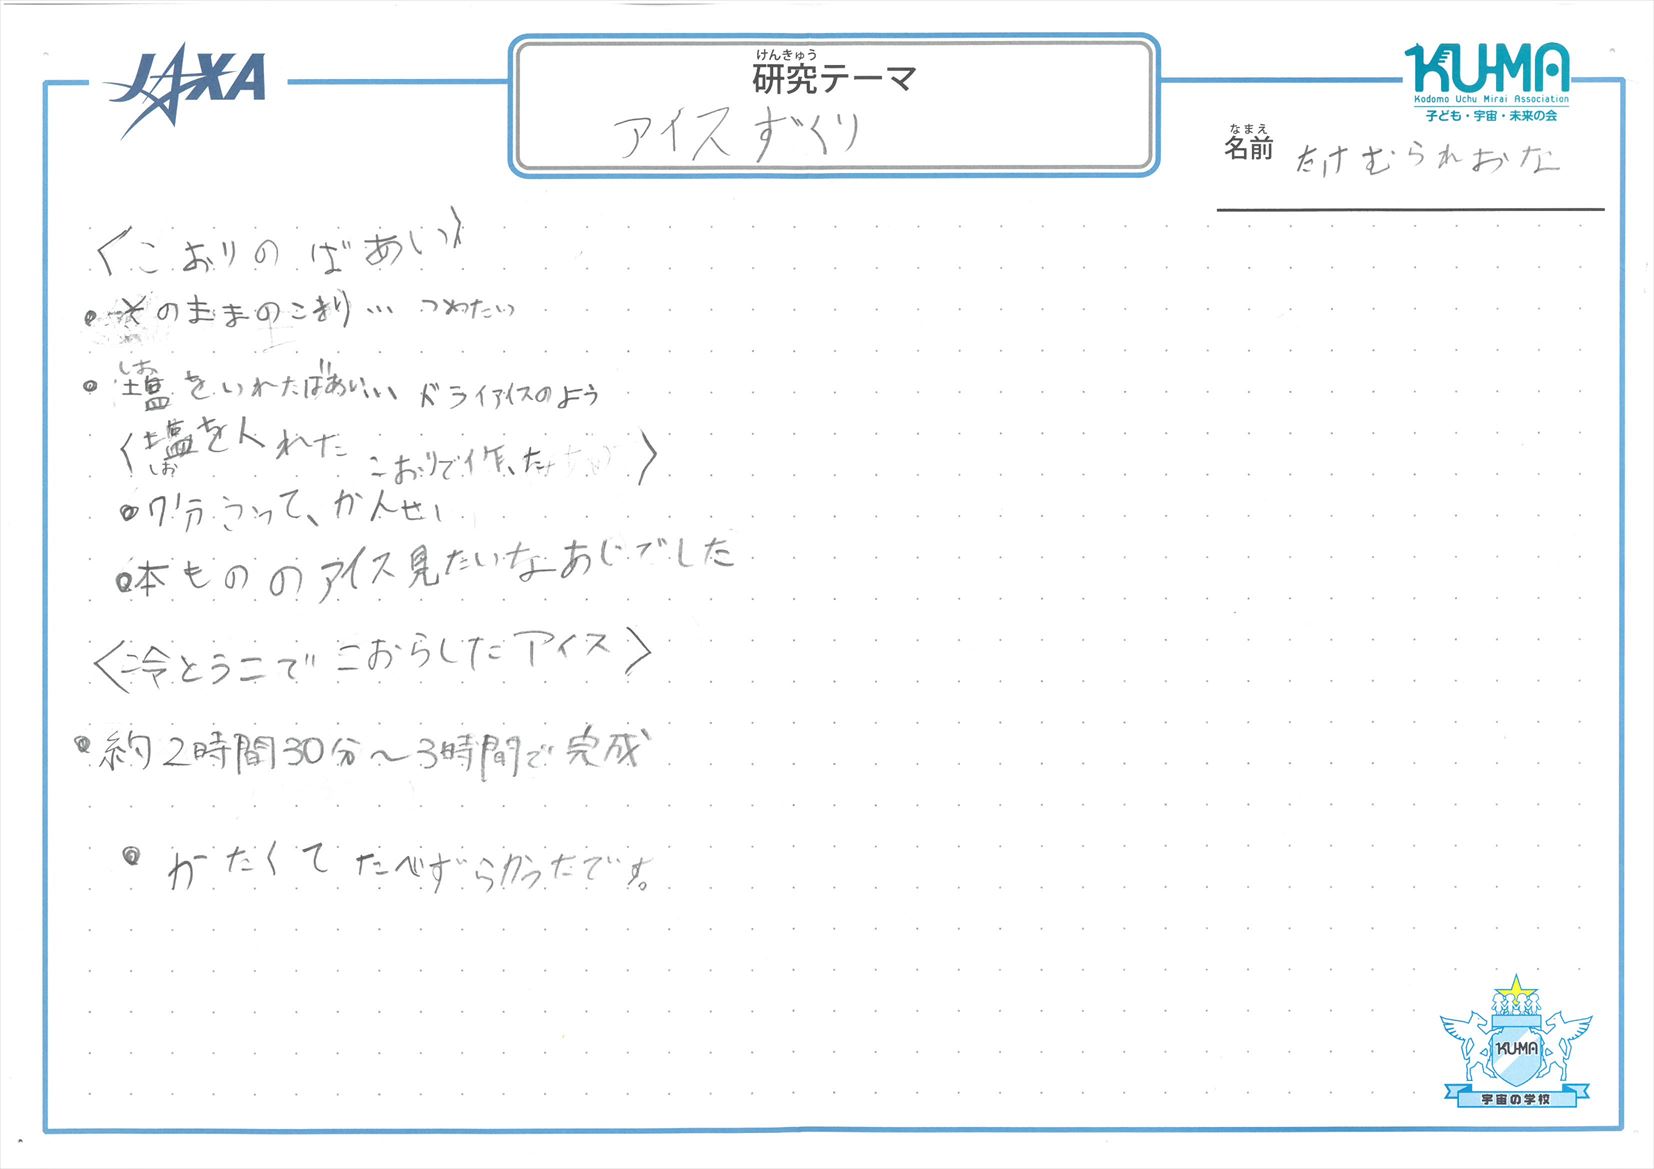 JAXA
けんきゅう
研究テーマ
アイスずくり
KU-MA
Kodomo Uchu Mirai Association
子ども・宇宙・未来の会
なまえ
名前 たけむられおな
〈こおりのばあい〉
・そのままのこおり… つめたい
しお
・塩をいれたばあい… ドライアイスのよう
〈塩を入れた こおりで作った 〉
しお
・7分うって、かんせい
・本もののアイス見たいなあじでした
〈冷とうこでこおらしたアイス〉
・約2時間30分〜3時間で完成
・かたくてたべずらかったです。
KU-MA
宇宙の学校